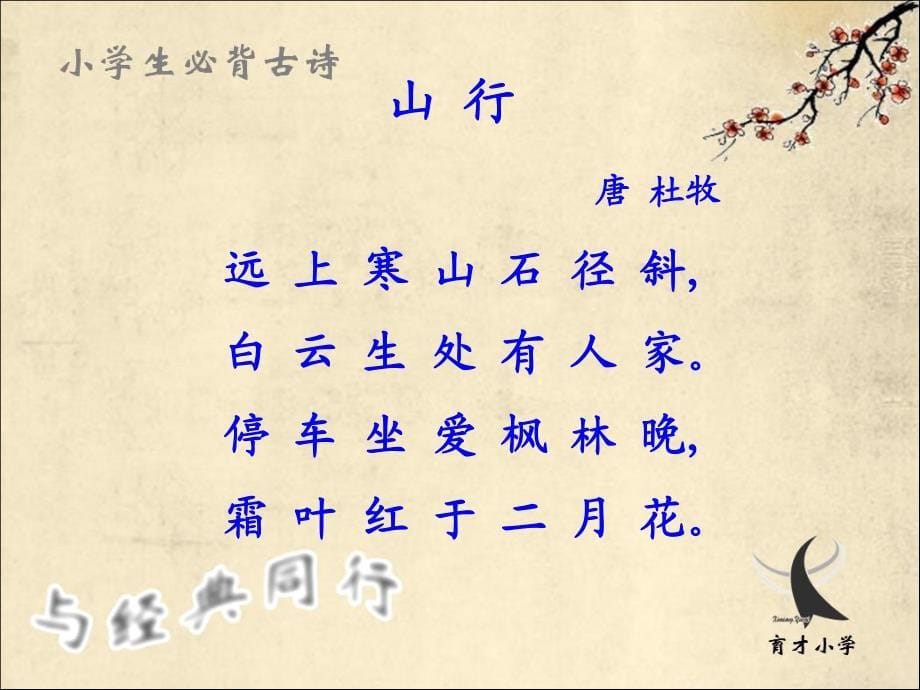 小学生必背古诗
山行
唐 杜牧
远上寒山石径斜,
白云生处有人家。
停车坐爱枫林晚,
霜叶红于二月花。
与经典同行
育才小学